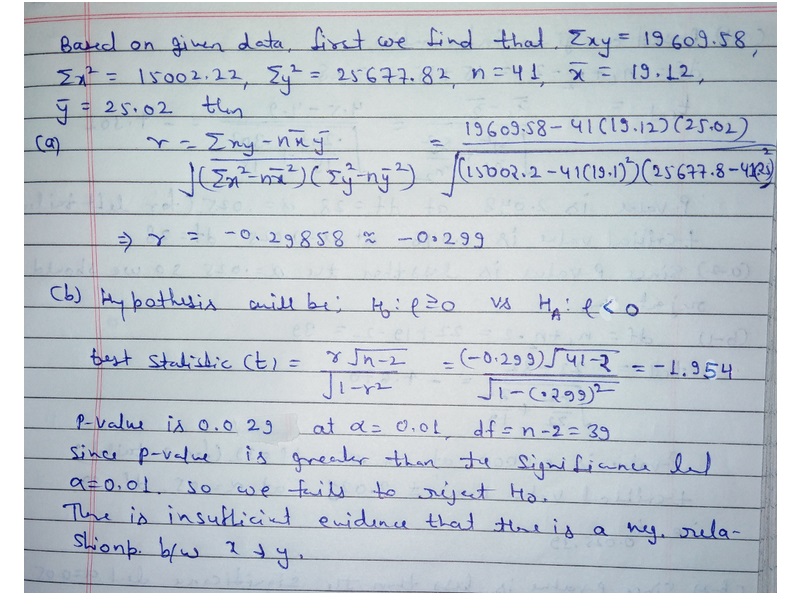 Based on given data, first we find that, Σxy = 19609.58,
Σx² = 15002.22, Σy² = 25677.82, n = 41, x̄ = 19.12,
ȳ = 25.02 then
(a) r = Σxy - nx̄ȳ / √(Σx² - nx̄²)(Σy² - nȳ²) = 19609.58 - 41(19.12)(25.02) / √(15002.2 - 41(19.1)²)(25677.8 - 41(25)²)
⇒ r = -0.29858 ≈ -0.299
(b) Hypothesis will be; H₀: ρ ≥ 0 vs H_A: ρ < 0
test statistic (t) = r√n-2 / √1-r² = (-0.299)√41-2 / √1-(.299)² = -1.954
P-value is 0.029 at α = 0.01, df = n-2 = 39
Since p-value is greater than the significance lel
α=0.01. so we fails to reject H₀.
There is insufficient evidence that there is a neg. rela-
shionp. b/w x & y.